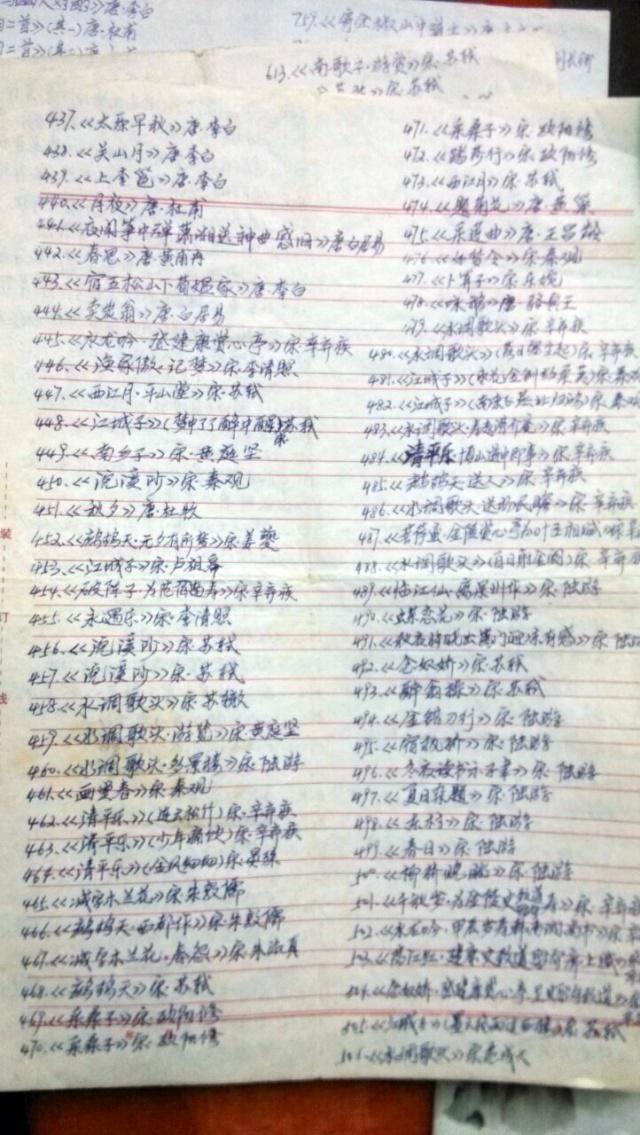 613.<<南歌子·游赏>>宋·苏轼
437.<<太原早秋>>唐·李白
438.<<关山月>>唐·李白
439.<<上李邕>>唐·李白
440.<<月夜>>唐·杜甫
441.<<夜闻筝中弹潇湘送神曲感旧>>唐白居易
442.<<春思>>唐·皇甫冉
443.<<宿五松山下荀媪家>>唐·李白
444.<<卖炭翁>>唐·白居易
445.<<水龙吟·登建康赏心亭>>宋·辛弃疾
446.<<渔家傲·记梦>>宋·李清照
447.<<西江月·平山堂>>宋·苏轼
448.<<江城子>>(梦中了了醉中醒)宋苏轼
449.<<南乡子>>宋·黄庭坚
450.<<浣溪沙>>宋·秦观
451.<<秋夕>>唐·杜牧
452.<<鹧鸪天·元夕有所梦>>宋姜夔
453.<<江城子>>宋·卢祖皋
454.<<破阵子·为范南伯寿>>宋·辛弃疾
455.<<永遇乐>>宋·李清照
456.<<浣溪沙>>宋·苏轼
457.<<浣溪沙>>宋·苏轼
458.<<水调歌头>>宋·苏辙
459.<<水调歌头·游览>>宋·黄庭坚
460.<<水调歌头·多景楼>>宋·陆游
461.<<画堂春>>宋·秦观
462.<<清平乐>>(连云松竹)宋·辛弃疾
463.<<清平乐>>(少年痛饮)宋·辛弃疾
464.<<清平乐>>(金风细细)宋·晏殊
465.<<减字木兰花>>宋朱敦儒
466.<<鹧鸪天·西都作>>宋朱敦儒
467.<<减字木兰花·春怨>>宋·朱淑真
468.<<鹧鸪天>>宋·苏轼
469.<<采桑子>>宋·欧阳修
470.<<采桑子>>宋·欧阳修
471.<<采桑子>>宋·欧阳修
472.<<踏莎行>>宋·欧阳修
473.<<西江月>>宋·苏轼
474.<<题菊花>>唐·黄巢
475.<<采莲曲>>唐·王昌龄
476.<<如梦令>>宋·秦观
477.<<卜算子>>宋·乐婉
478.<<咏鹅>>唐·骆宾王
479.<<水调歌头>>宋·辛弃疾
480.<<水调歌头>>宋·辛弃疾
481.<<江城子>>
482.<<江城子>>
483.<<水调歌头>>宋·辛弃疾
484.<<清平乐·博山道中即事>>宋·辛弃疾
485.<<鹧鸪天·送人>>宋·辛弃疾
486.<<水调歌头>>宋·辛弃疾
488.<<水调歌头>>
489.<<临江仙·离果州作>>宋·陆游
490.<<蝶恋花>>宋·陆游
491.<<秋夜将晓出篱门迎凉有感>>宋·陆
492.<<念奴娇>>宋·苏轼
493.<<醉翁操>>宋·苏轼
494.<<金错刀行>>宋·陆游
495.<<宿枫桥>>宋·陆游
496.<<冬夜读书示子聿>>宋·陆游
497.<<夏日杂题>>宋·陆游
498.<<东村>>宋·陆游
499.<<春日>>宋·陆游
500.<<柳桥晚眺>>宋·陆游
501.<<千秋岁·为金陵史致道寿>>宋·辛弃
502.<<水龙吟·甲辰岁寿韩南涧尚书>>宋
503.<<满江红·建康史致道留守席上赋>>
505.<<江城子>>宋·苏轼
506.<<水调歌头>>
装
订
线